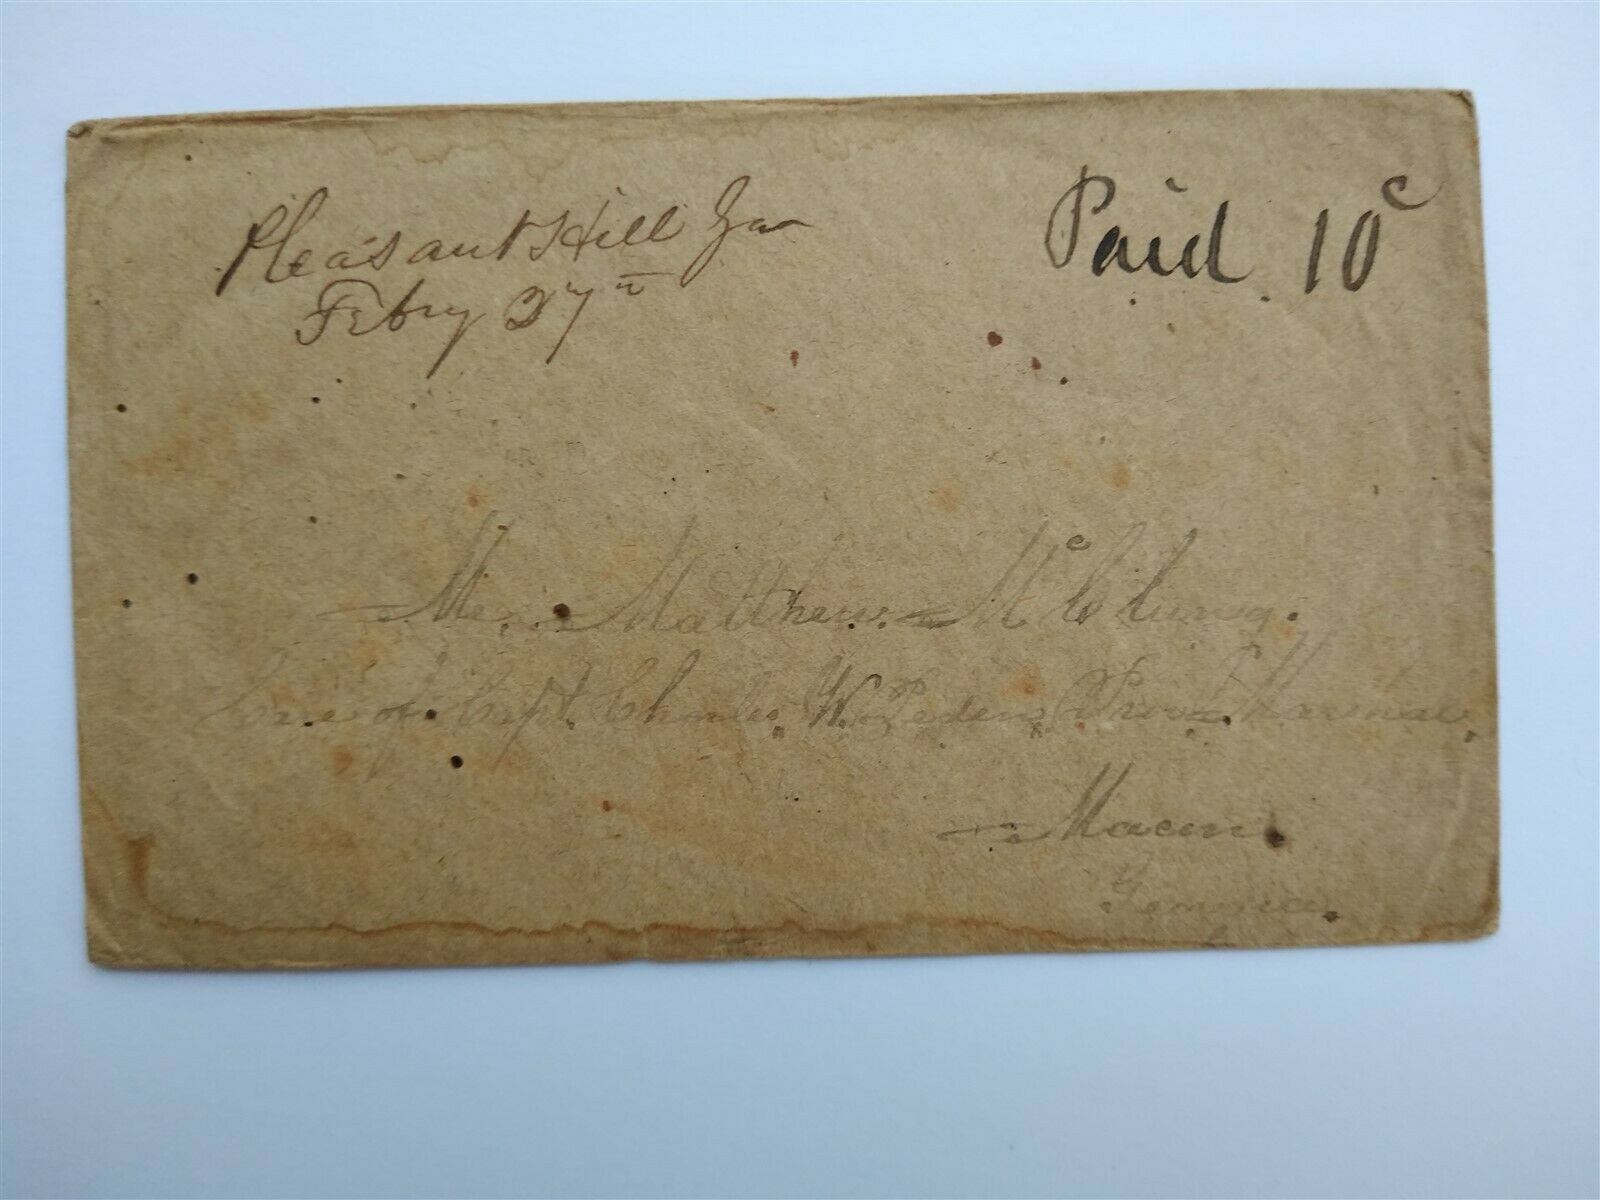 Pleasant Hill Ga
Febry 27th
Paid 10c
Mr. Matthew McClurg.
Care of Capt. Charles W. Peden, Provt Marshal,
Macon.
Georgia.